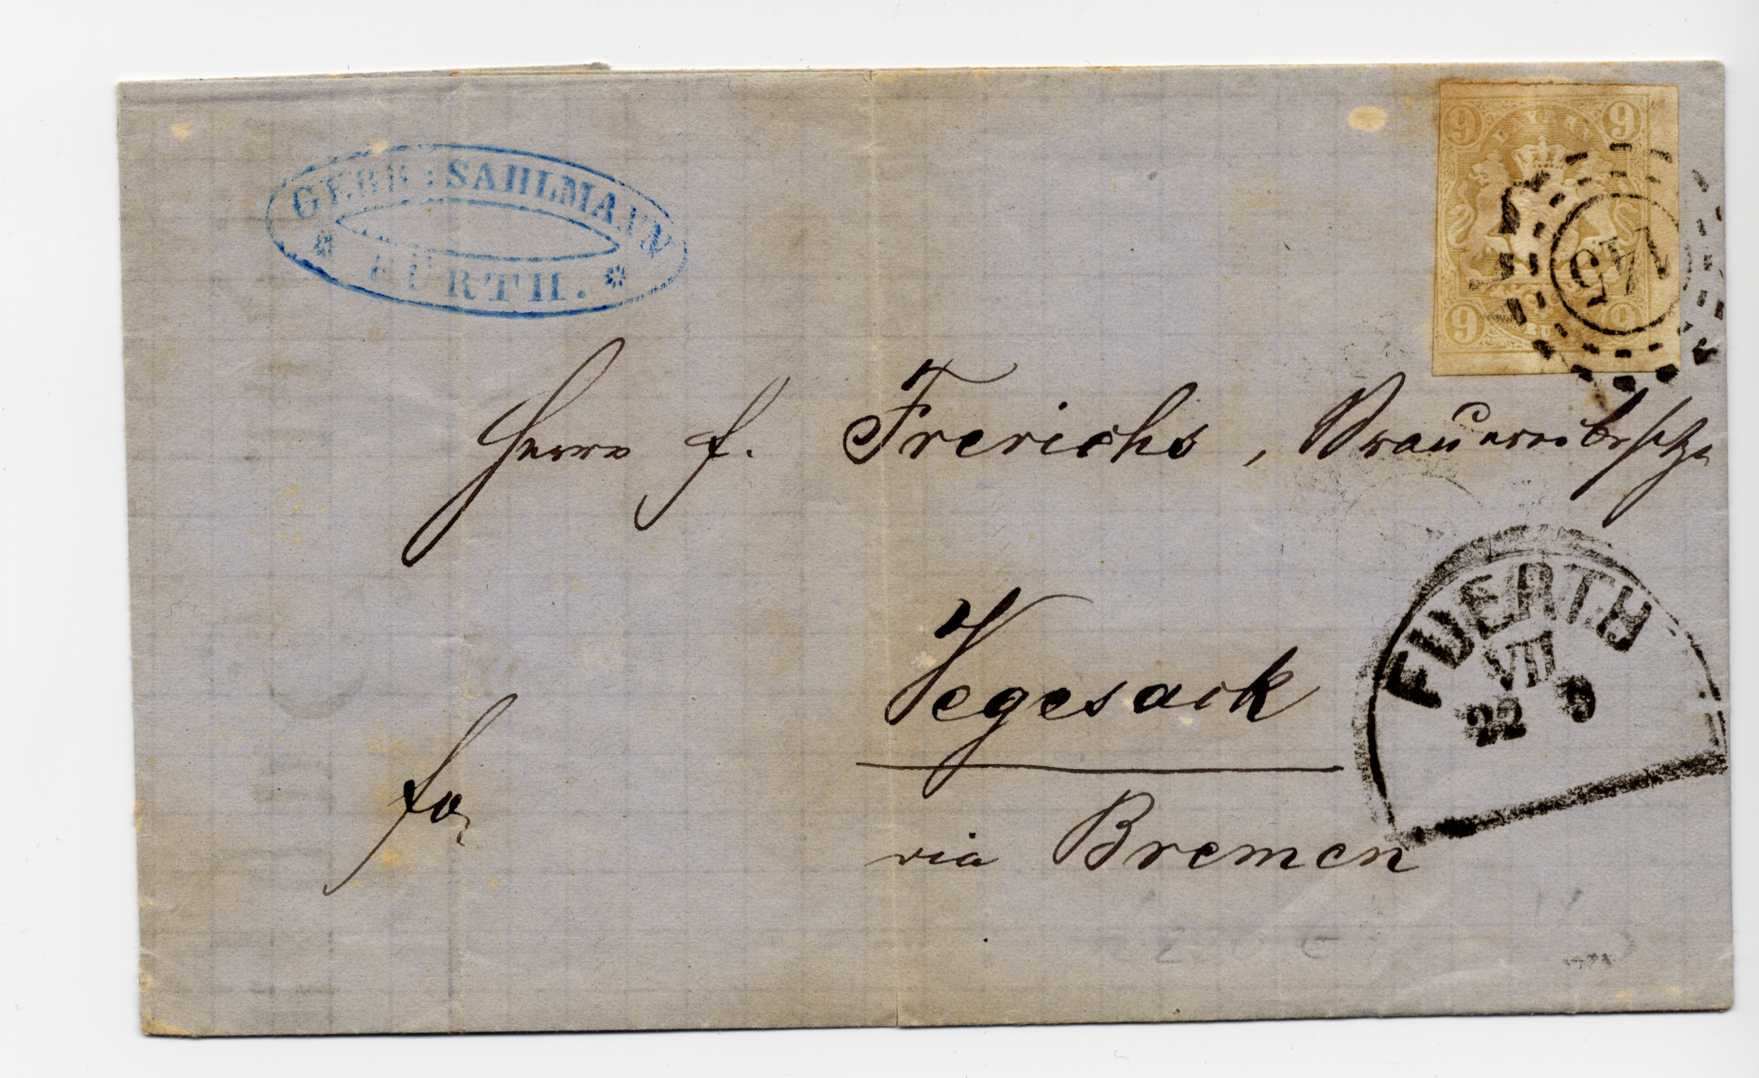 GEBR: SAHLMANN
FÜRTH.
9 9
145
9 9
Herrn f. Frerichs, Brauereibesitzer
Vegesack
fo.
via Bremen
FUERTH
VII
22 9